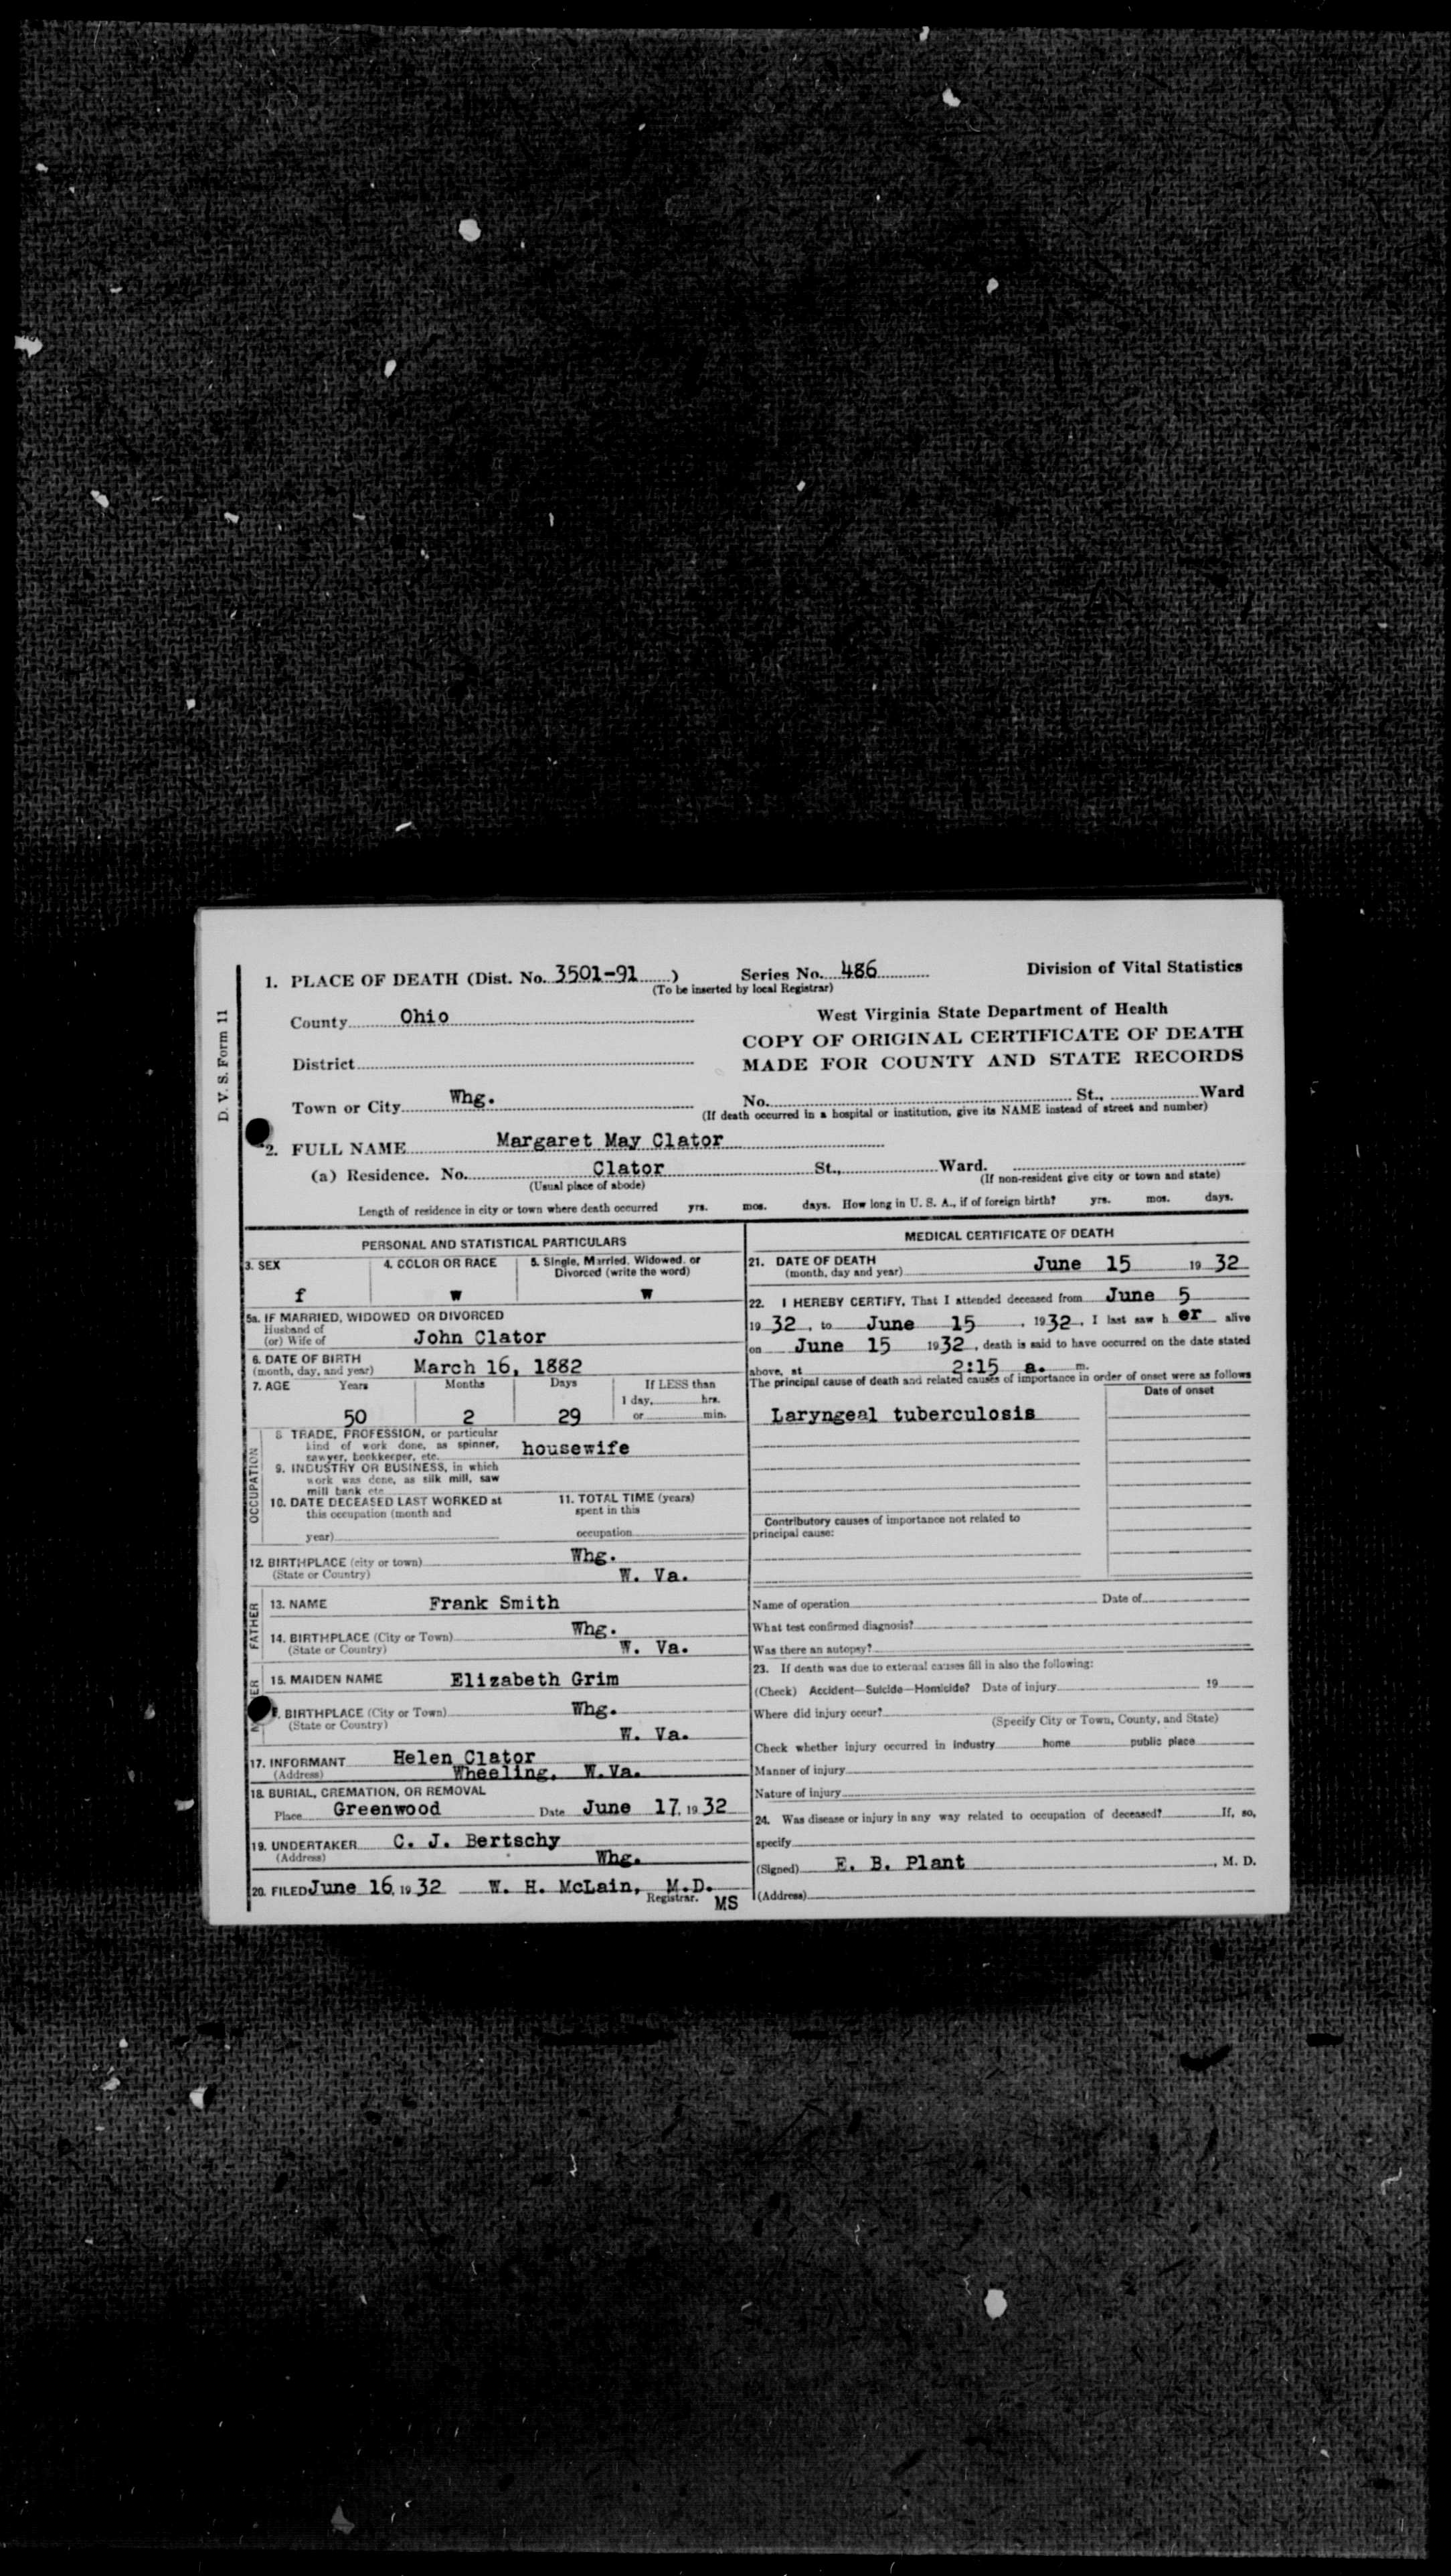 D. V. S. Form 11
1. PLACE OF DEATH (Dist. No. 3501-91 ) Series No. 486 Division of Vital Statistics
(To be inserted by local Registrar)
County Ohio West Virginia State Department of Health
COPY OF ORIGINAL CERTIFICATE OF DEATH
District MADE FOR COUNTY AND STATE RECORDS
Town or City Whg. No. St., Ward
(If death occurred in a hospital or institution, give its NAME instead of street and number)
2. FULL NAME Margaret May Clator
(a) Residence. No. Clator St., Ward.
(Usual place of abode) (If non-resident give city or town and state)
Length of residence in city or town where death occurred yrs. mos. days. How long in U. S. A., if of foreign birth? yrs. mos. days.
PERSONAL AND STATISTICAL PARTICULARS
3. SEX 4. COLOR OR RACE 5. Single, Married, Widowed, or
Divorced (write the word)
f w w
5a. IF MARRIED, WIDOWED OR DIVORCED
Husband of
(or) Wife of John Clator
6. DATE OF BIRTH
(month, day, and year) March 16, 1882
7. AGE Years Months Days If LESS than
1 day, hrs.
50 2 29 or min.
OCCUPATION
8 TRADE, PROFESSION, or particular
kind of work done, as spinner,
sawyer, bookkeeper, etc. housewife
9. INDUSTRY OR BUSINESS, in which
work was done, as silk mill, saw
mill bank etc
10. DATE DECEASED LAST WORKED at 11. TOTAL TIME (years)
this occupation (month and spent in this
year) occupation
12. BIRTHPLACE (city or town) Whg.
(State or Country) W. Va.
FATHER
13. NAME Frank Smith
14. BIRTHPLACE (City or Town) Whg.
(State or Country) W. Va.
15. MAIDEN NAME Elizabeth Grim
BIRTHPLACE (City or Town) Whg.
(State or Country) W. Va.
17. INFORMANT Helen Clator
(Address) Wheeling, W.Va.
18. BURIAL, CREMATION, OR REMOVAL
Place Greenwood Date June 17, 19 32
19. UNDERTAKER C. J. Bertschy
(Address) Whg.
20. FILED June 16, 19 32 W. H. McLain, M.D.
Registrar. MS
MEDICAL CERTIFICATE OF DEATH
21. DATE OF DEATH
(month, day and year) June 15 19 32
22. I HEREBY CERTIFY, That I attended deceased from June 5
19 32, to June 15, 1932, I last saw h er alive
on June 15 1932, death is said to have occurred on the date stated
above, at 2:15 a. m.
The principal cause of death and related causes of importance in order of onset were as follows
Date of onset
Laryngeal tuberculosis
Contributory causes of importance not related to
principal cause:
Name of operation Date of
What test confirmed diagnosis?
Was there an autopsy?
23. If death was due to external causes fill in also the following:
(Check) Accident—Suicide—Homicide? Date of injury 19
Where did injury occur?
(Specify City or Town, County, and State)
Check whether injury occurred in industry home public place
Manner of injury
Nature of injury
24. Was disease or injury in any way related to occupation of deceased? If, so,
specify
(Signed) E. B. Plant , M. D.
(Address)